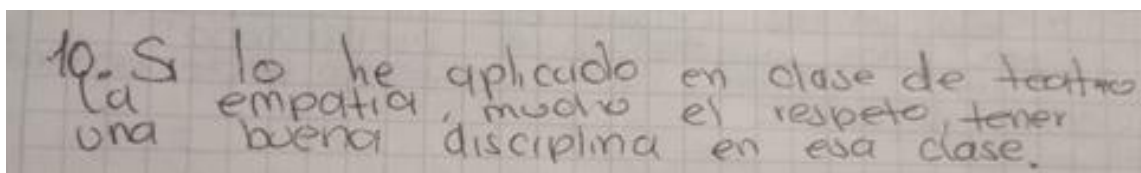 10.- Si lo he aplicado en clase de teatro
la empatia, mucho el respeto, tener
una buena disciplina en esa clase.